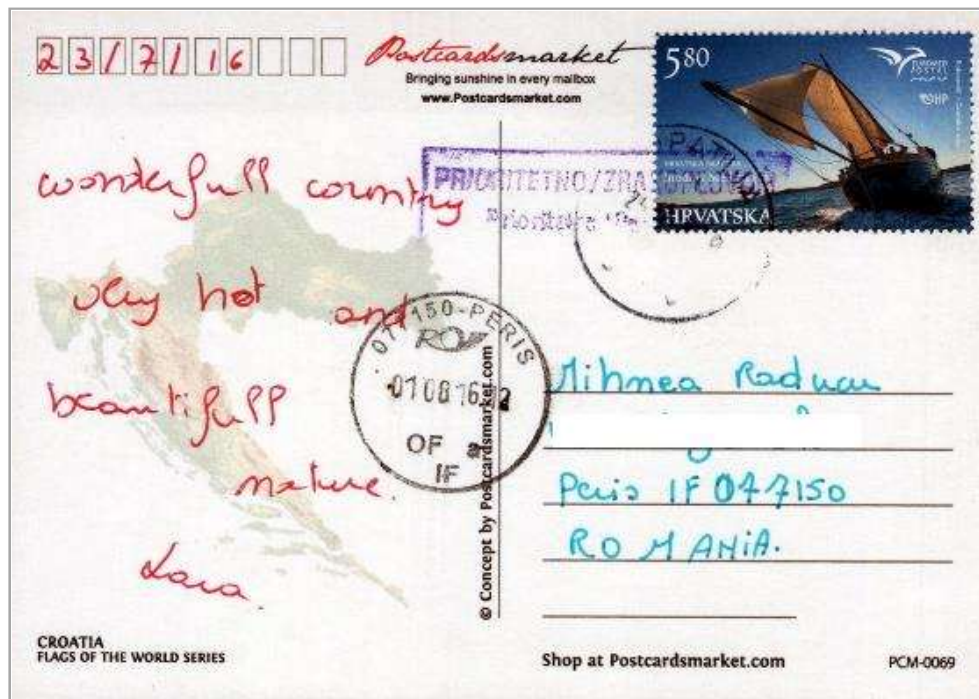 23/7/16
Postcardsmarket
Bringing sunshine in every mailbox
www.Postcardsmarket.com
5,80
HP
HRVATSKA
PRIORITETNO/ZRAKOPLOVOM
Prioritaire
wonderfull country
very hot and
beautifull
nature.
Lara
077150-PERIS
01 08 16
OF a
IF
© Concept by Postcardsmarket.com
Mihnea Raducu
Peris IF 077150
ROMANIA.
CROATIA
FLAGS OF THE WORLD SERIES
Shop at Postcardsmarket.com
PCM-0069